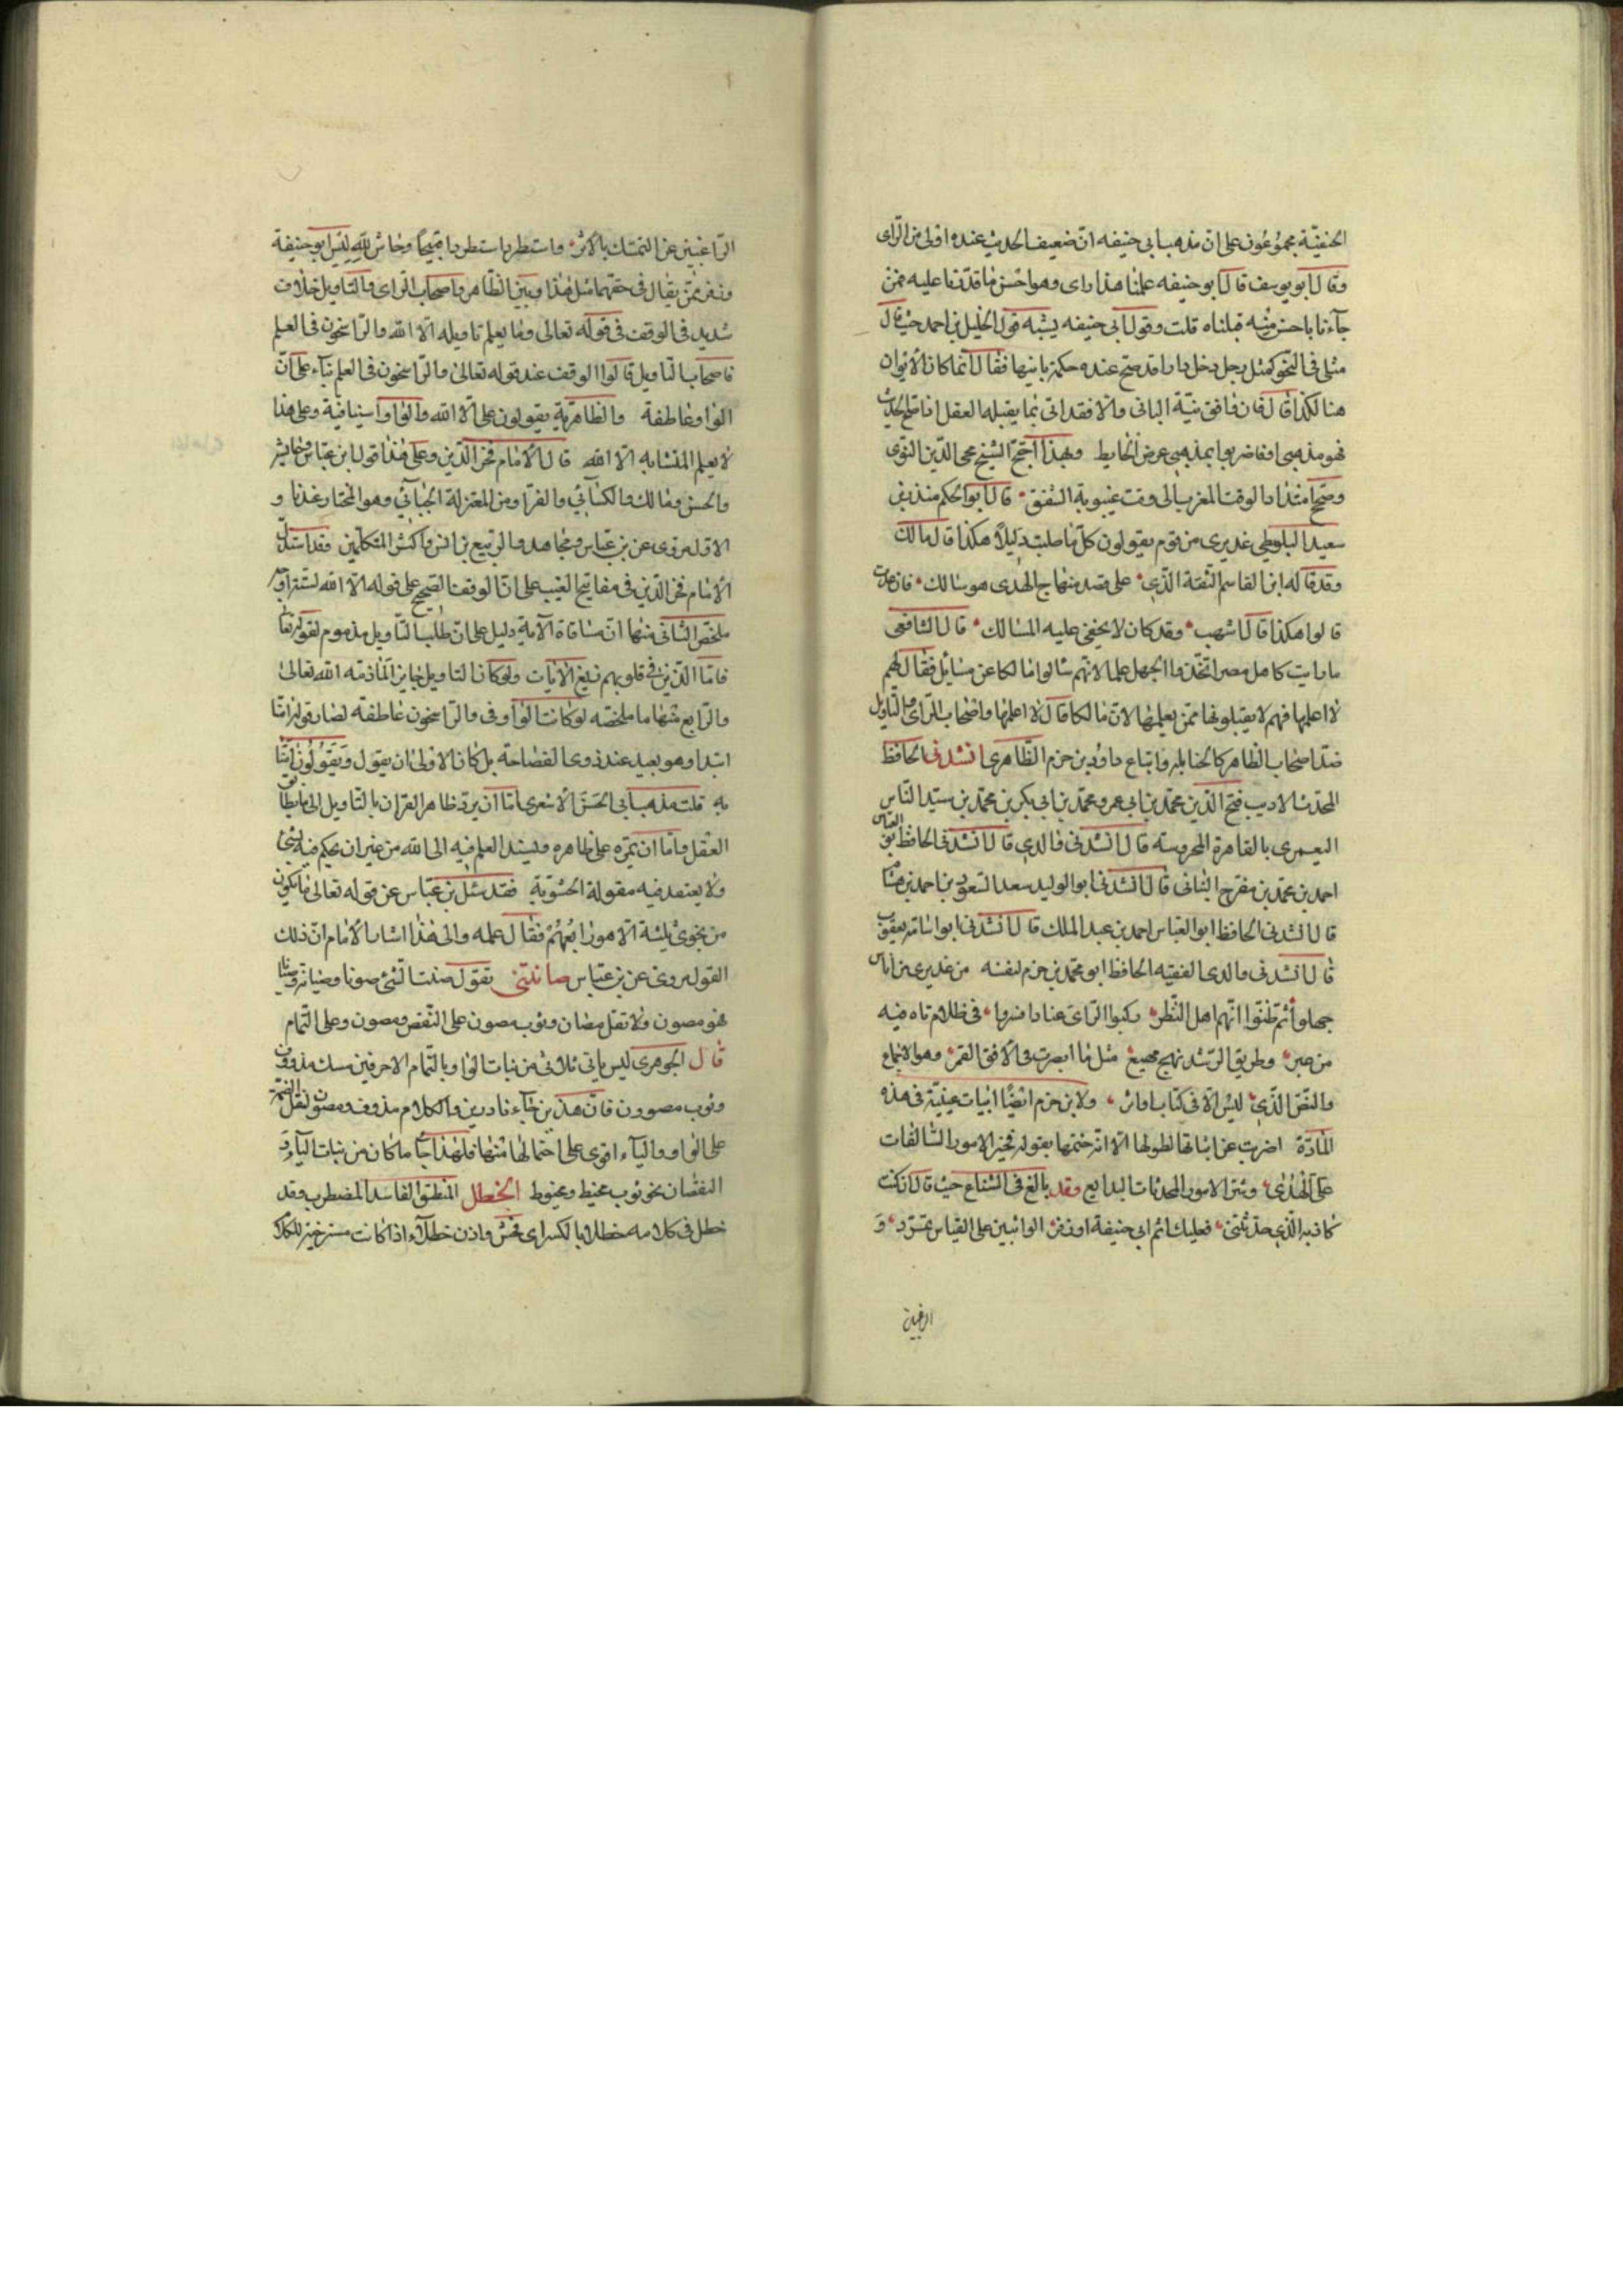 الحنفيّة مجموعون على انّ مذهب ابى حنيفه انّ ضعيف الحديث عنده اولى من الراى
وقال ابو يوسف قال ابو حنيفه علمنا هذا راى وهو احسن ما قدرنا عليه فمن
جآءنا باحسن منه قبلناه قلت وقول ابى حنيفه يشبه قول الخليل بن احمد حيث قال
مثلى فى النحو كمثل رجل دخل دارا قد صح عنده حكمة بانيها فقال انما كان الايوان
هنا لكذا قال فان وافق نيّة البانى والا فقد اتى بما يقبله العقل اذا صح الحديث
فهو مذهبى او فاضربوا بمذهبى عرض الحايط وبهذا احتج الشيخ محى الدين النووى
وصحح امتداد الوقت المغرب الى وقت غيبوبة الشفق قال ابو الحكم منذر بن
سعيد البلوطى عذيرى من قوم يقولون كلّما طلبت دليلاً هكذا قال مالك
وقد قاله ابن القاسم الثقة الذى على قصد منهاج الهدى هو سالك فان عدت
قالوا هكذا قال اشهب وقد كان لا يخفى عليه المسالك قال الشافعى
ما رايت كاهل مصر اتخذوا الجهل علما لانهم سالوا مالكا عن مسايل فقال لهم
لا اعلمها فهم لا يقبلونها ممن يعلمها لانّ مالكا قال لا اعلمها واصحاب الراى والتاويل
ضد اصحاب الظاهر كالحنابلة واتباع داود بن حزم الظاهرى انشدنى الحافظ
المحدث الاديب فتح الدين محمد بن ابى عمرو محمد بن ابى بكر بن محمد بن سيد الناس
اليعمرى بالقاهرة المحروسة قال انشدنى والدى قال انشدنى الحافظ ابو العباس
احمد بن محمد بن مفرج النباتى قال انشدنى ابو الوليد سعد السعود بن احمد بن هشام
قال انشدنى الحافظ ابو العباس احمد بن عبد الملك قال انشدنى ابو اسامة يعقوب
قال انشدنى والدى الفقيه الحافظ ابو محمد بن حزم لنفسه من عذيرى من اناس
جهلوا ثم ظنّوا انهم اهل النظر ركبوا الراى عنادا فسروا فى ظلام تاه فيه
من عبر وطريق الرشد نهج مهيع مثل ما ابصرت فى الافق القمر وهو الاجماع
والنص الذى ليس الا فى كتاب او اثر ولابن حزم ايضًا ابيات عينيّة فى هذه
المادّة اضربت عن اثباتها لطولها الا انه ختمها بقوله فخير الامور السالفات
على الهدى وشر الامور المحدثات البدايع وقد بالغ فى الشناع حيث قال ان كنت
كاذبة الذى حدثتنى فعليك اثم ابى حنيفة او زفر الواثبين على القياس تمرّد و
الراغبين
الراغبين عن التمسك بالاثر واستطرد استطردا قبيحا وحاش لله ليس ابو حنيفة
وزفر ممن يقال فى حقهما مثل هذا وبين الظاهر واصحاب الراى والتاويل خلاف
شديد فى الوقف فى قوله تعالى وما يعلم تاويله الا الله والراسخون فى العلم
فاصحاب التاويل قالوا الوقف عند قوله تعالى والراسخون فى العلم بناء على انّ
الواو عاطفة والظاهرية يقولون على الا الله والواو استينافية وعلى هذا
لا يعلم المتشابه الا الله قال الامام فخر الدين وعلى هذا قول ابن عباس وعايشة
والحسن ومالك والكسائى والفرا ومن المعتزلة الجبآئى وهو المختار عندنا و
الاول مروى عن بن عباس ومجاهد والربيع بن انس واكثر المتكلمين وقد استدل
الامام فخر الدين فى مفاتيح الغيب على انّ الوقف الصحيح على قوله الا الله لستة اوجه
ملخص الثانى منها انّ مساقاة الآية دليل على انّ طلب التاويل مذموم لقوله تعالى
فامّا الذين فى قلوبهم زيغ الايات ولو كان التاويل جايزا لما ذمه الله تعالى
والرابع منها ما ملخصه لو كانت الواو فى والراسخون عاطفة لصار قوله امنا
ابتدا وهو بعيد عند ذوى الفصاحة بل كان الاولى ان يقول ويقولون امنّا
به قلت مذهب ابى الحسن الاشعرى امّا ان يردّ ظاهر القران بالتاويل الى ما يطابق
العقل وامّا ان يمرّه على ظاهره ويسند العلم فيه الى الله من غير ان يحكم فيه بشئ
ولا يعتقد فيه مقولة الحشوية فقد سئل بن عباس عن قوله تعالى ما يكون
من نجوى ثلثة الا هو رابعهم فقال علمه والى هذا اشار الامام انّ ذلك
القول مروى عن بن عباس صانتنى تقول صنت الشئ صونا وصيانة وصيانا
فهو مصون ولا تقل مصان وثوب مصون على النقص ومصوون على التمام
قال الجوهرى ليس ياتى ثلاثى من بنات الواو بالتمام الا حرفين مسك مدووف
وثوب مصوون فانّ هذين جاآ نادرين والكلام مدوف ومصون لثقل الضمة
على الواو والياء اقوى على احتمالها منها فلهذا جا ما كان من بنات الياء و
النقصان نحو ثوب مخيط ومخيوط الخطل المنطق الفاسد المضطرب وقد
خطل فى كلامه خطلا بالكسر اى فحش واذن خطلآء اذا كانت مسترخية الكلا